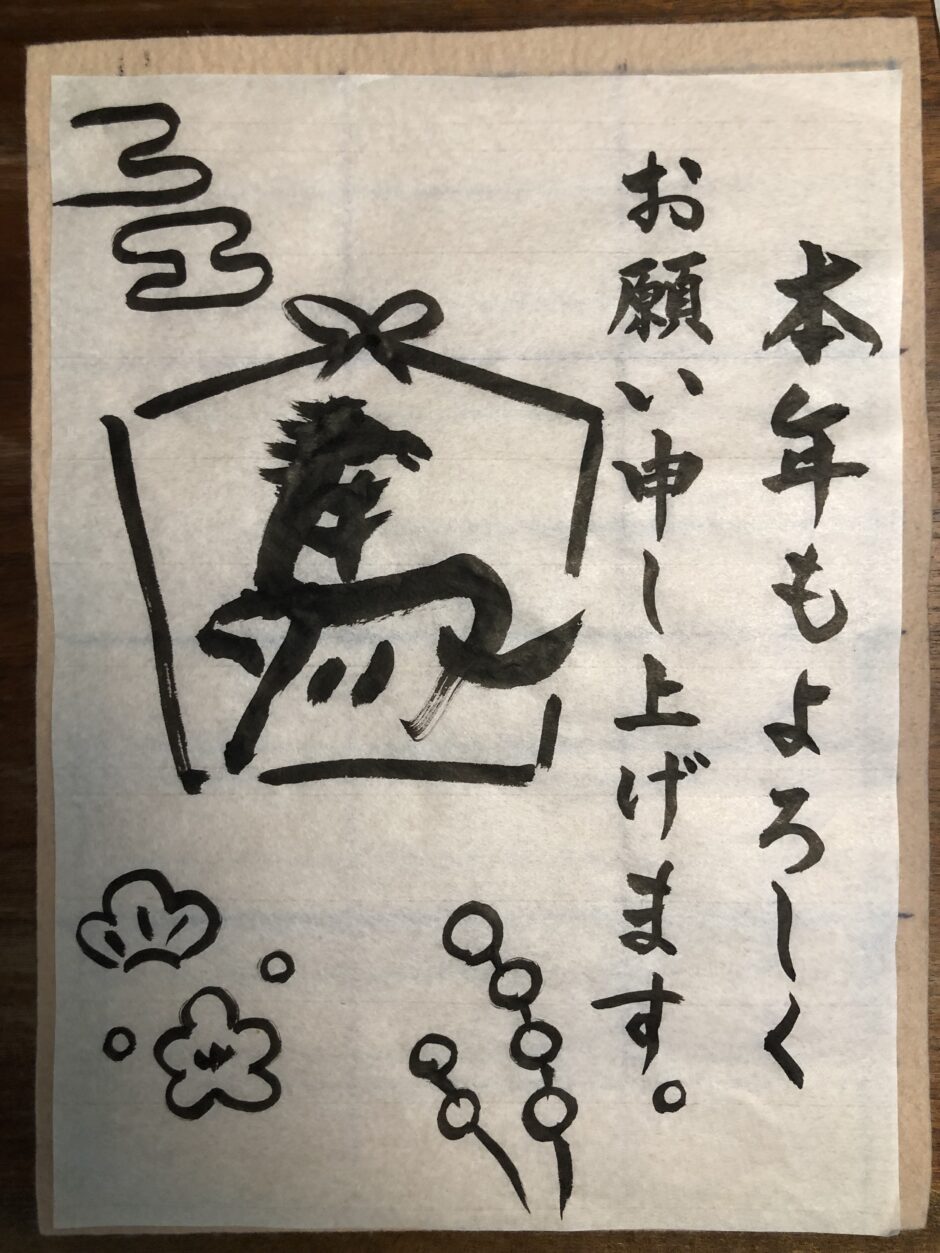 本年もよろしく
お願い申し上げます。
馬